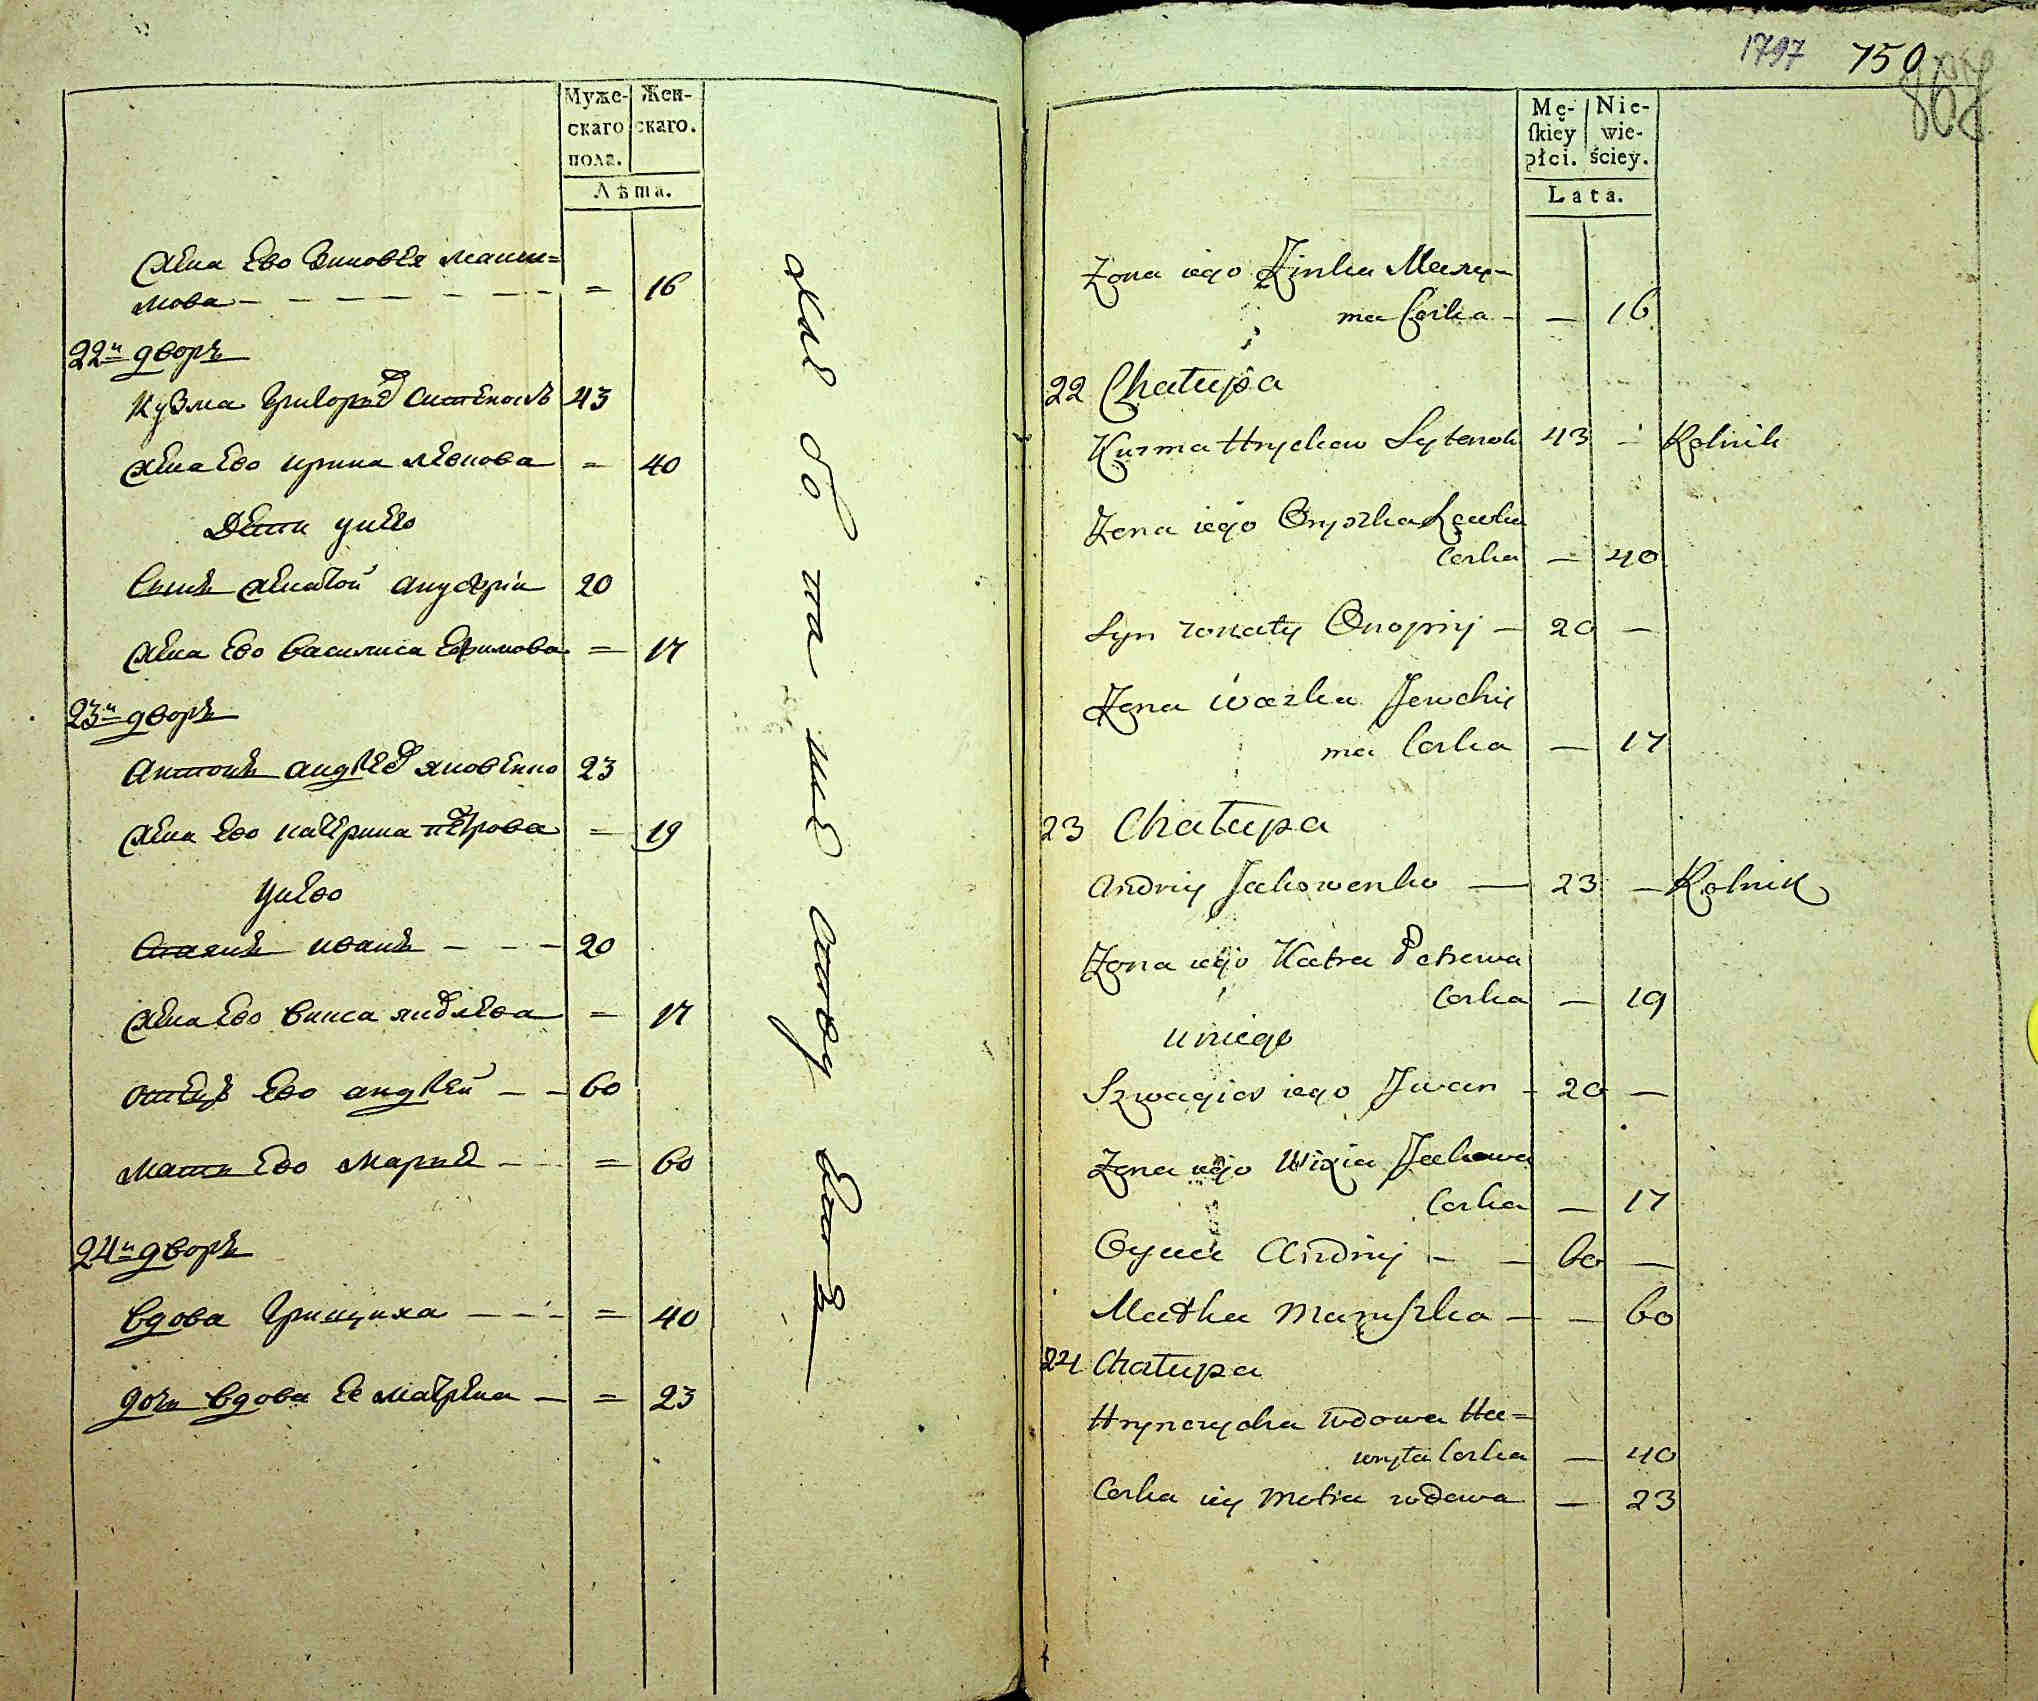 Муже-
скаго
пола.
Жен-
скаго.
Лѣта.
жена ево Зиновѣя макси=
мова - - - - - - - = 16
22й дворъ
Кузма Григорьев Ситенокъ 43
жена ево ирина левкова = 40
Дети унево
Сынъ женатой ануфрїи 20
жена ево василиса ефимова = 17
23й дворъ
Антонъ андреев яковенко 23
жена ево катерина петрова = 19
унево
иванъ - - - 20
жена ево яковлева = 17
отецъ ево андрей - - 60
мати ево - - = 60
24й дворъ
вдова Грициха - - - = 40
дочь вдова ее матрена - = 23
1797 750
868
Mę-
skiey
płci.
Nie-
wie-
ściey.
Lata.
Żona iego Zinka Maxy-
ma Corka - — 16
22 Chałupa
Kuzma Hryckow Sytenok 43 - Rolnik
Żona iego Oryszka Lewka
Corka — 40
Syn zonaty Onopry — 20 —
Żona Waska Jewchi
ma Corka — 17
23 Chałupa
Andriy Jakowenko — 23 — Rolnik
Żona iego Katra Petrowa
Corka — 19
u niego
Szwagier iego Jwan - 20 —
Żona iego Jakowa
Corka — 17
Oyciec Andriy - — 60 —
Matka Maryszka - — 60
24 Chałupa
Hrynczycha wdowa Ha=
wryła Corka — 40
Corka iey Motra wdowa — 23